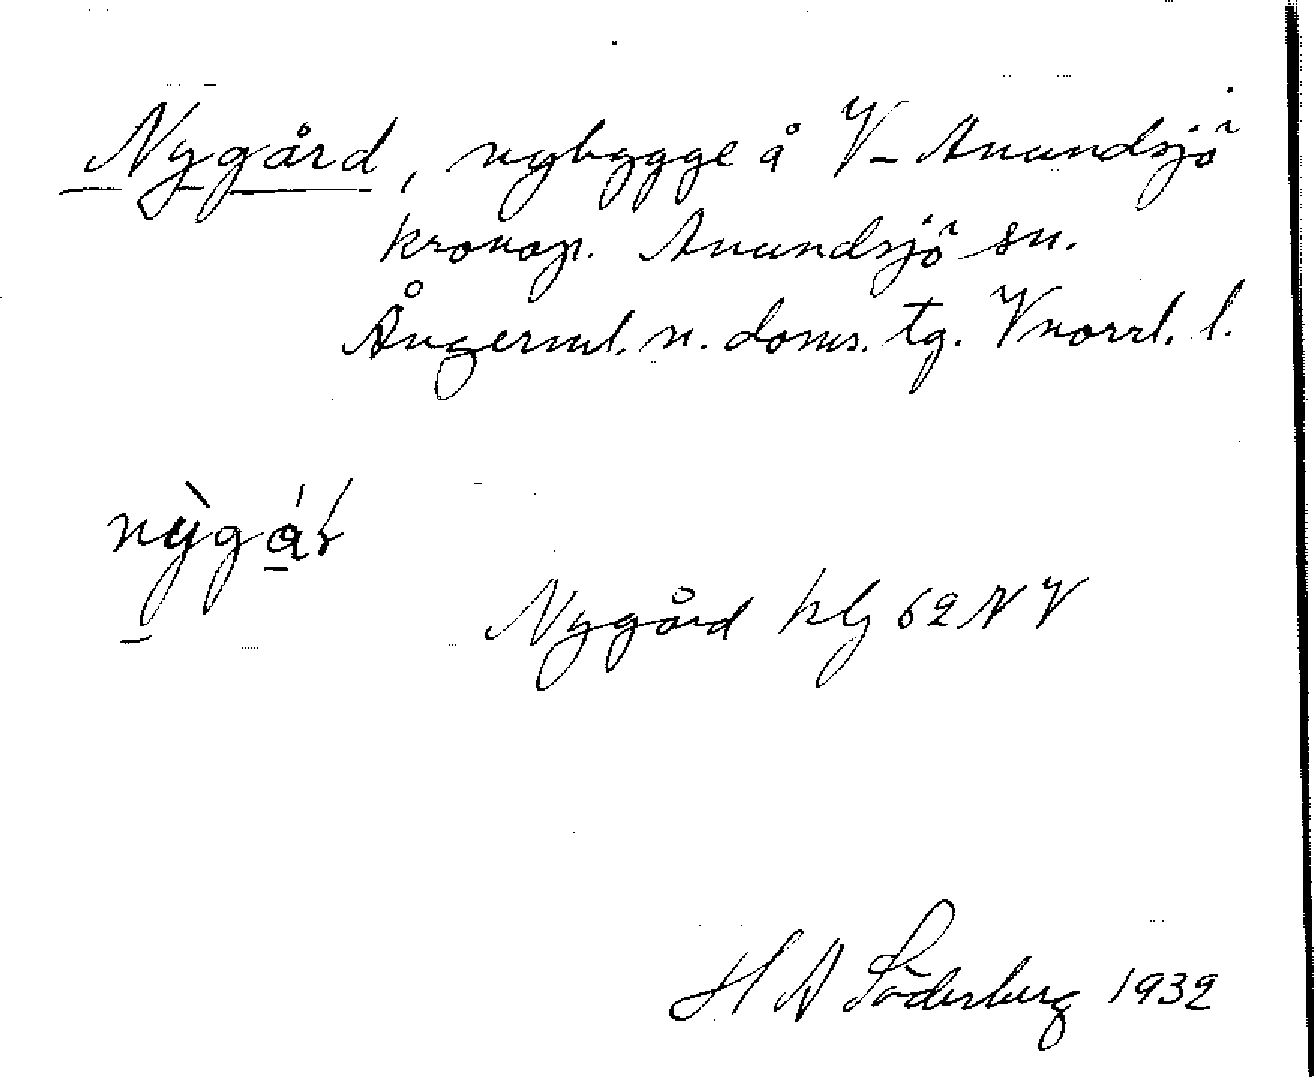 Nygård, nybygge å V-Anundsjö
kronop. Anundsjö sn.
Ångerml. n. doms. tg. Vnorrl. l.
nỳgár
Nygård klg 62 NV
H A Söderberg 1932